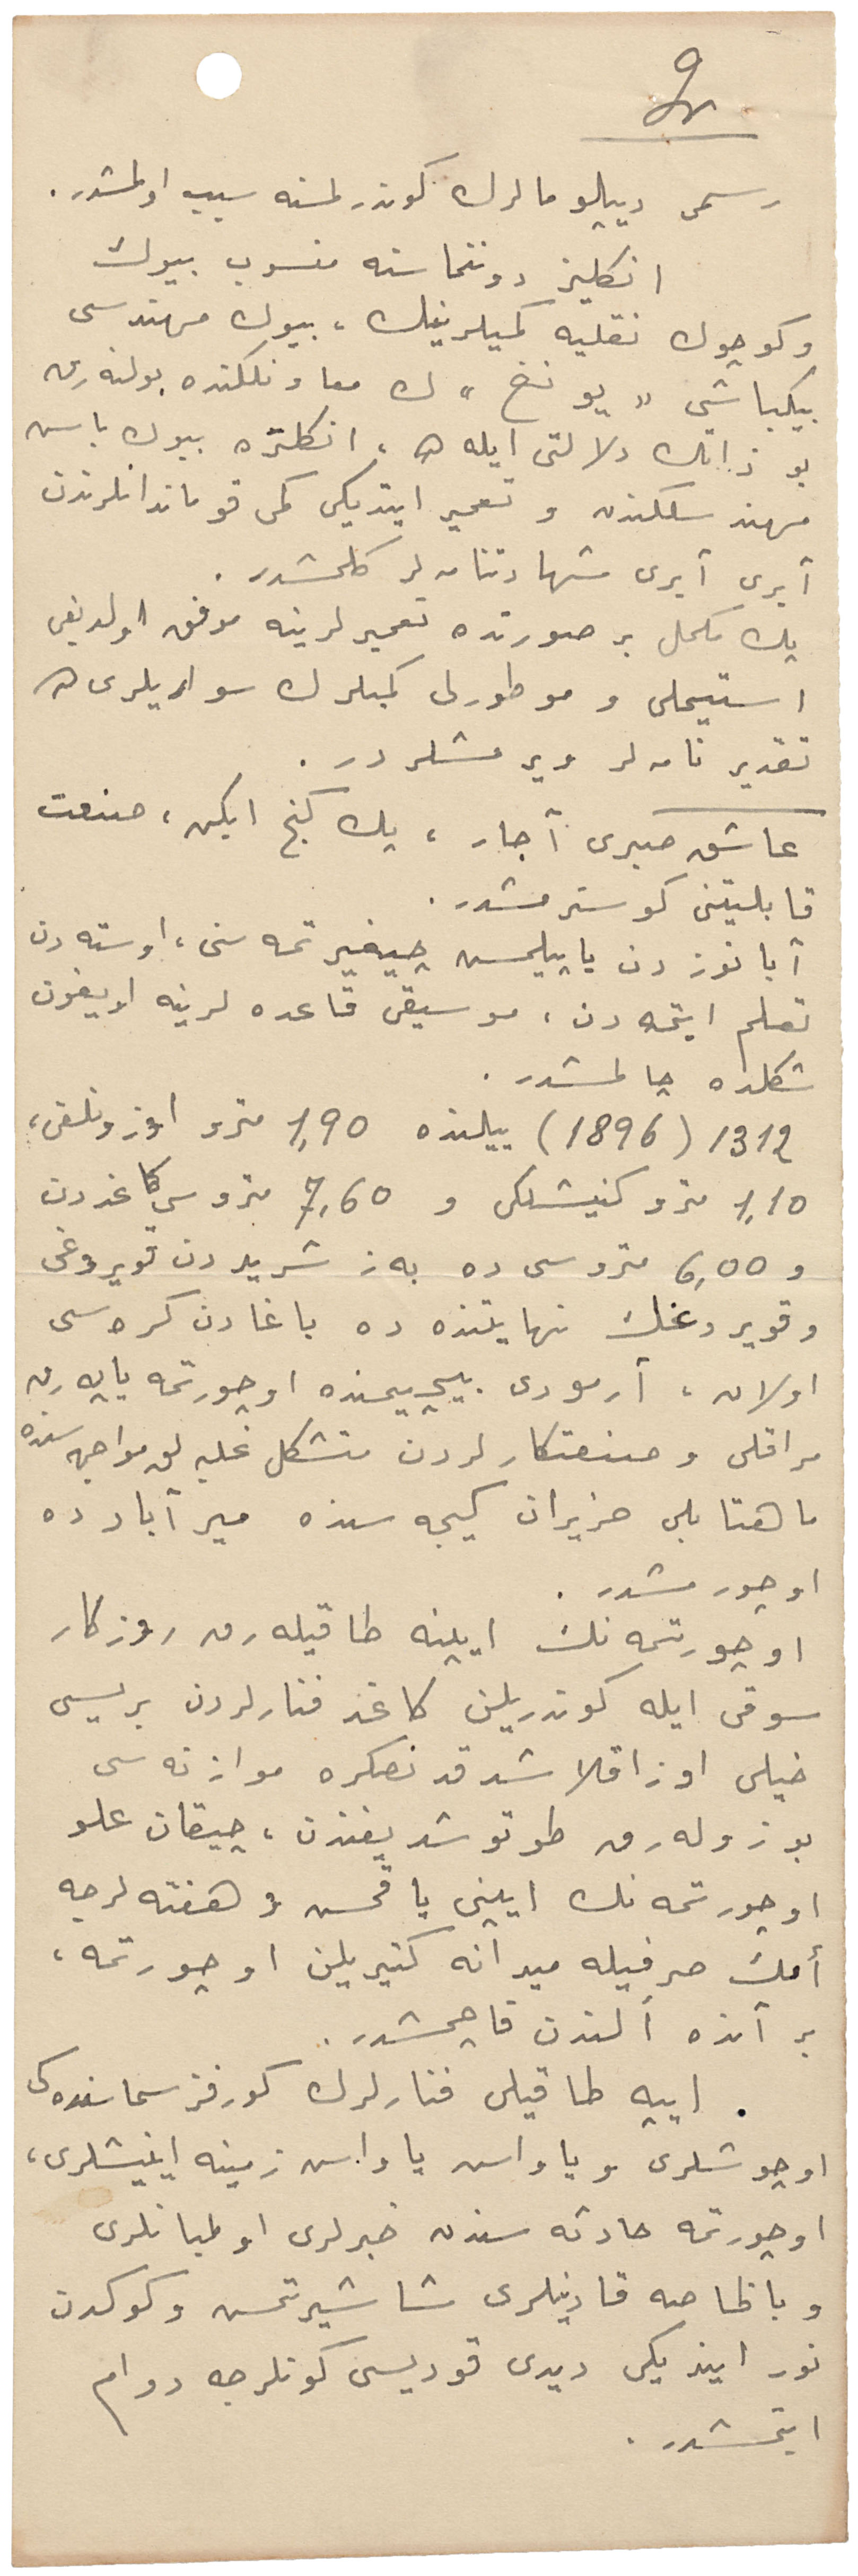 رسمی دیپلومالرك كوندرلمسنه سبب اولمشدر.
انكلیز دوننماسنه منسوب بیوك
وكوچوك نقلیه كمیلرینك، بیوك مهندسی
بیكباشی «یونغ» ك معاونلكنده بولنەرق
بو ذاتك دلالتی ایله ده، انكلتره بیوك باش
مهندسلكندن و تعمیر ایتدیكی كمی قوماندانلرندن
آیری آیری شهادتنامەلر كلمشدر.
پك مكمل بر صورتده تعمیرلرینه موفق اولدیغی
استیملی و موطورلی كمیلرك سواریلری ده
تقدیرنامەلر ویرمشلردر.
عاشق صبری آجار، پك كنج ایكن، صنعت
قابلیتنی كوسترمشدر.
آبانوزدن یاپیلمش چیغیرتمەسنی، اوستەدن
تعلم ایتمەدن، موسیقی قاعدەلرینه اویغون
شكلده چالمشدر.
1312 (1896) ییلنده 1,90 مترو اوزونلغی،
1,10 مترو كنیشلكی و 7,60 متروسی كاغددن
و 6,00 متروسی ده بەز شریددن قویروغی
وقویروغك نهایتنده ده باغادن كرەسی
اولان، آرمودی بیچیمنده اوچورتمه یاپەرق
مراقلی و صنعتكارلردن متشكل غلبەلق مواجهەسنده
ماهتابلی حزیران كیجەسنده میرآبادده
اوچورمشدر.
اوچورتمەنك ایپنه طاقیلەرق روزكار
سوقی ایله كوندریلن كاغد فنارلردن بریسی
خیلی اوزاقلاشدقدنصكره موازنەسی
بوزولەرق طوتوشدیغندن، چیقان علو
اوچورتمەنك ایپنی یاقمش و هفتەلرجه
أمك صرفیله میدانه كتیریلن اوچورتمه،
بر آنده ألندن قاچمشدر.
ایپه طاقیلی فنارلرك كورفز سماسندەكی
اوچوشلری و یاواش یاواش زمینه اینیشلری،
اوچورتمه حادثەسندن خبرلری اولمیانلری
و باخاصه قادینلری شاشیرتمش و كوكدن
نور ایندیكی دیدی قودیسی كونلرجه دوام
ایتمشدر.